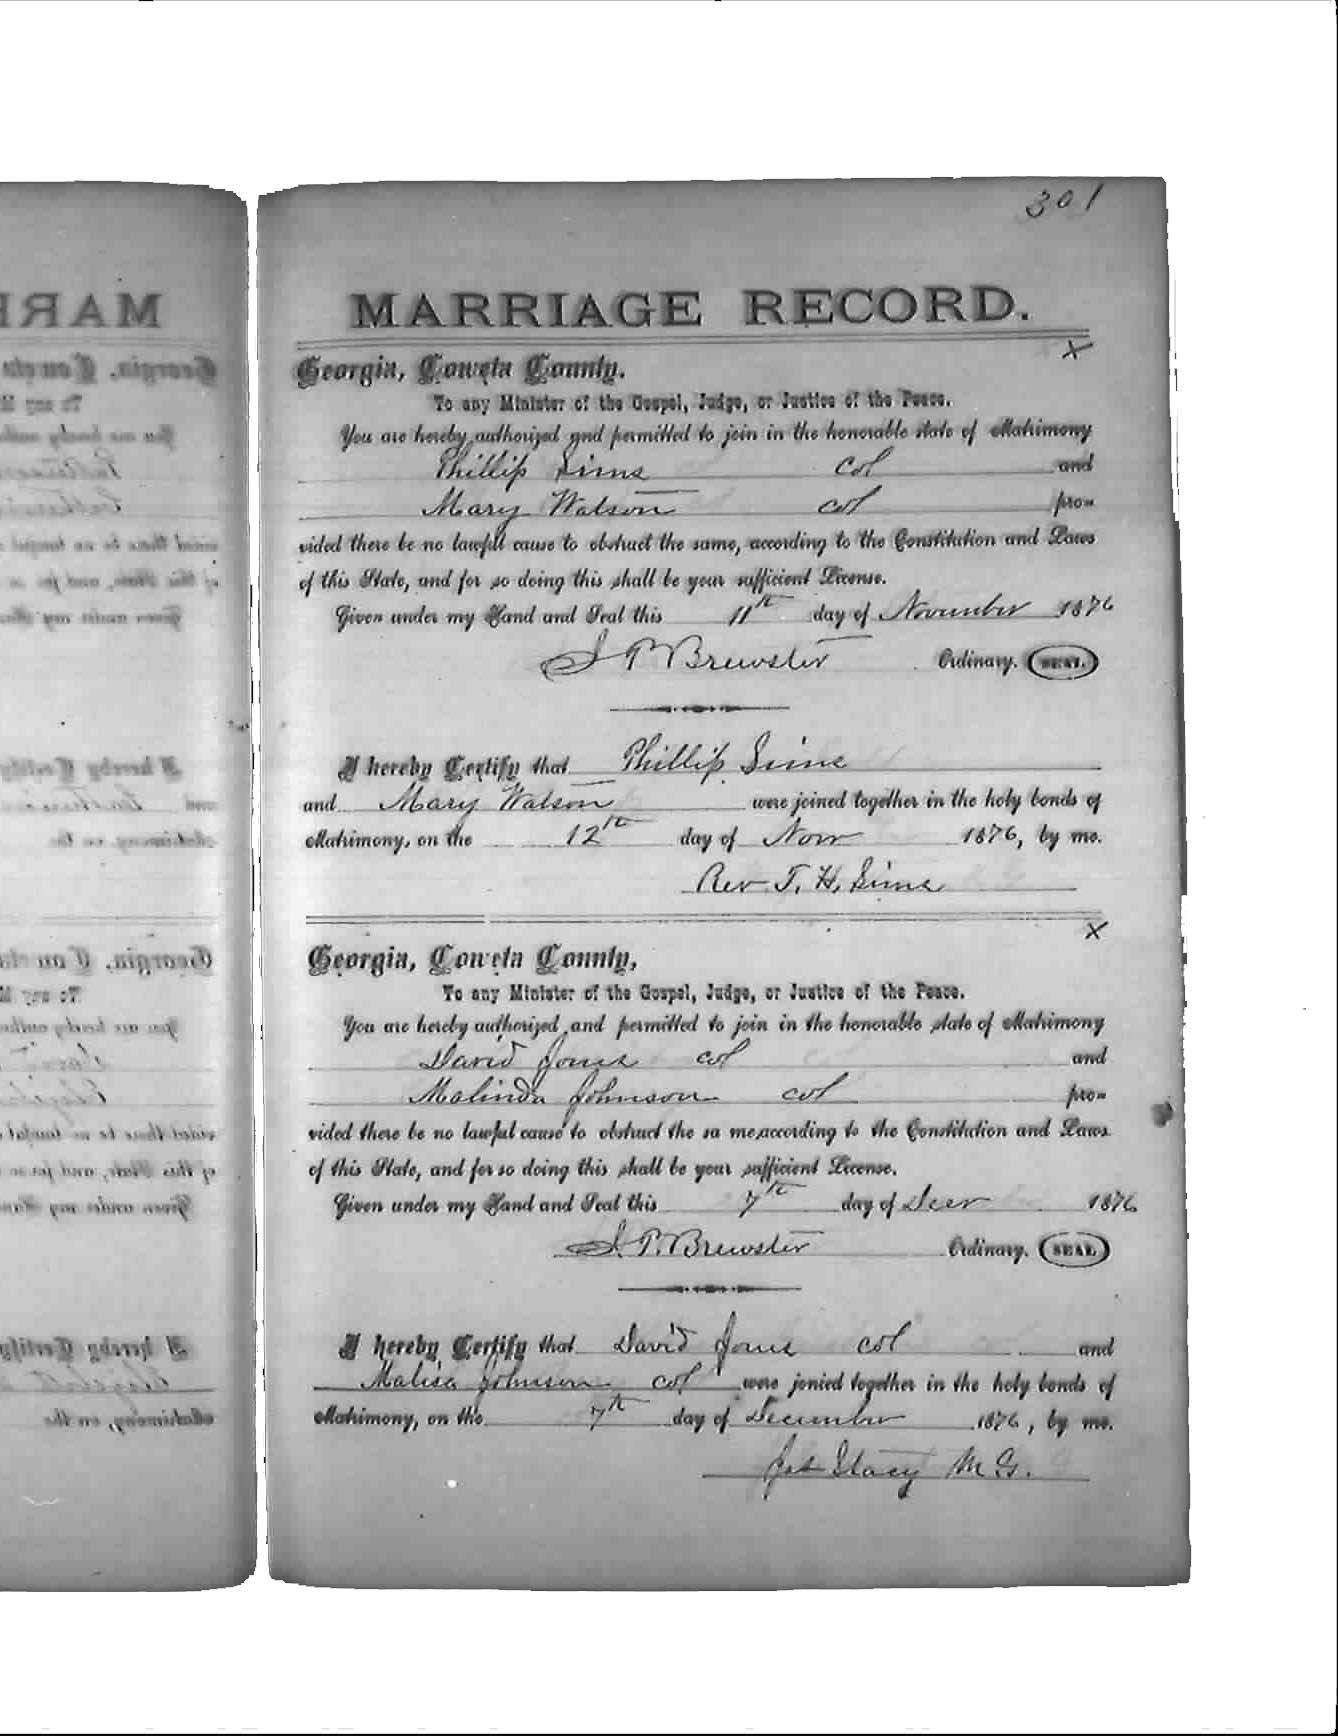 301
MARRIAGE RECORD.
X
Georgia, Coweta County.
To any Minister of the Gospel, Judge, or Justice of the Peace.
You are hereby authorized and permitted to join in the honorable state of Matrimony
Phillip Sims col and
Mary Watson col pro-
vided there be no lawful cause to obstruct the same, according to the Constitution and Laws
of this State, and for so doing this shall be your sufficient License.
Given under my Hand and Seal this 11th day of November 1876
J P Brewster Ordinary. SEAL.
I hereby Certify that Phillip Sims
and Mary Watson were joined together in the holy bonds of
Matrimony, on the 12th day of Novr 1876, by me.
Rev T. H. Sims
X
Georgia, Coweta County,
To any Minister of the Gospel, Judge, or Justice of the Peace.
You are hereby authorized and permitted to join in the honorable state of Matrimony
David Jones col and
Malinda Johnson col pro-
vided there be no lawful cause to obstruct the sa me, according to the Constitution and Laws
of this State, and for so doing this shall be your sufficient License.
Given under my Hand and Seal this 7th day of Decr 1876
J. P. Brewster Ordinary. SEAL
I hereby Certify that David Jones col and
Malisa Johnson col were jonied together in the holy bonds of
Matrimony, on the 7th day of December 1876, by me.
Jas Stacy M. G.